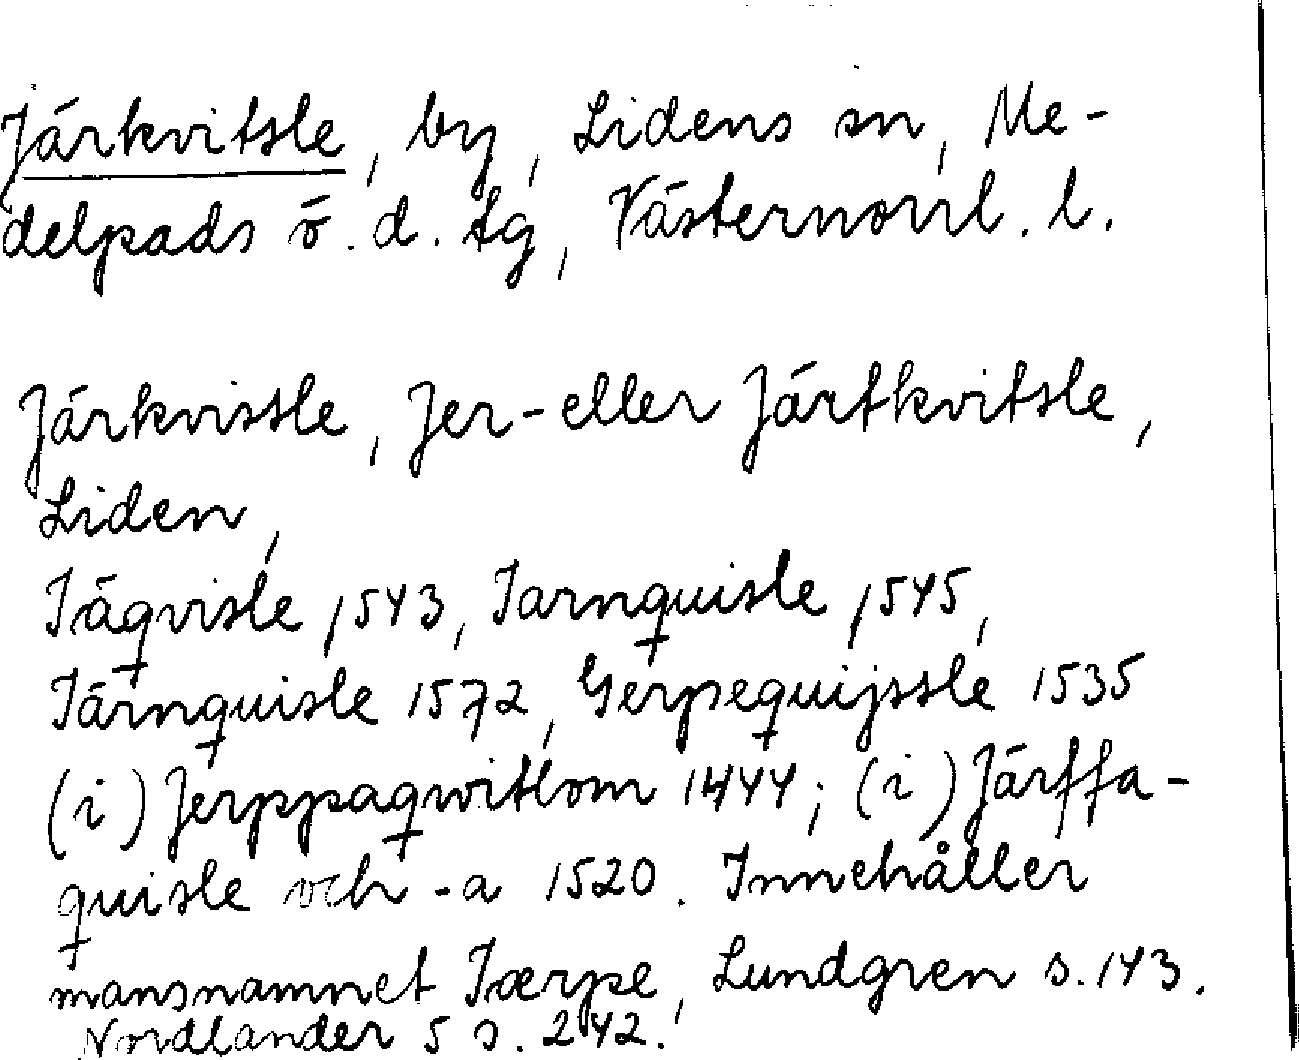 Järkvitsle, by, Lidens sn, Me-
delpads ö. d. tg, Västernorrl. l.
Järkvistle, Jer- eller Järtkvitsle,
Liden,
Jäqvisle 1543, Jarnquisle 1545,
Järnquisle 1572, Gerpequijssle 1535
(i) Jerppaqwitlom 1444; (i) Järffa-
quisle och -a 1520. Innehåller
mansnamnet Jærpe, Lundgren s. 143.
Nordlander 5 s. 242.